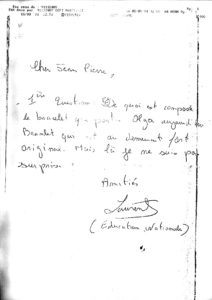 Cher Jean Pierre,
1ère Question : De quoi est composé
le bracelet que porte Olga
Bracelet qui est au demeurant fort
original. Mais là je ne suis pas
surprise.
Amitiés
Laurent
(Education Nationale)